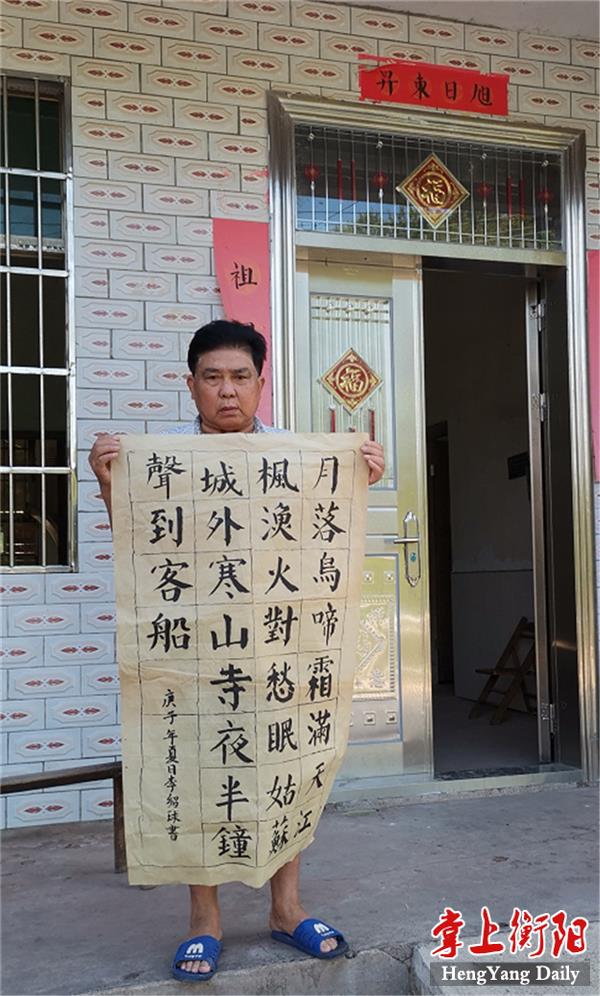 旭日東昇
福
祖
福
月落鳥啼霜滿天江
楓漁火對愁眠姑蘇
城外寒山寺夜半鐘
聲到客船
庚子年夏日李紹球書
掌上衡阳
HengYang Daily